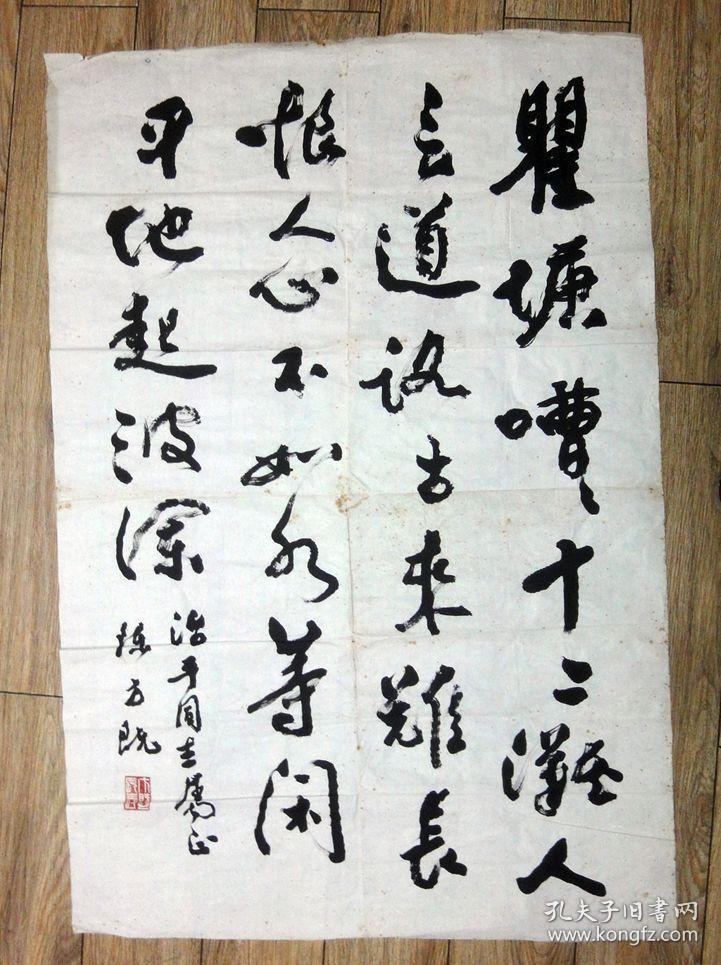 瞿塘嘈〻十二灘人
言道路古来難長
恨人心不如水等闲
平地起波澜
治平同志属正
陈方既
孔夫子旧書网
www.kongfz.com